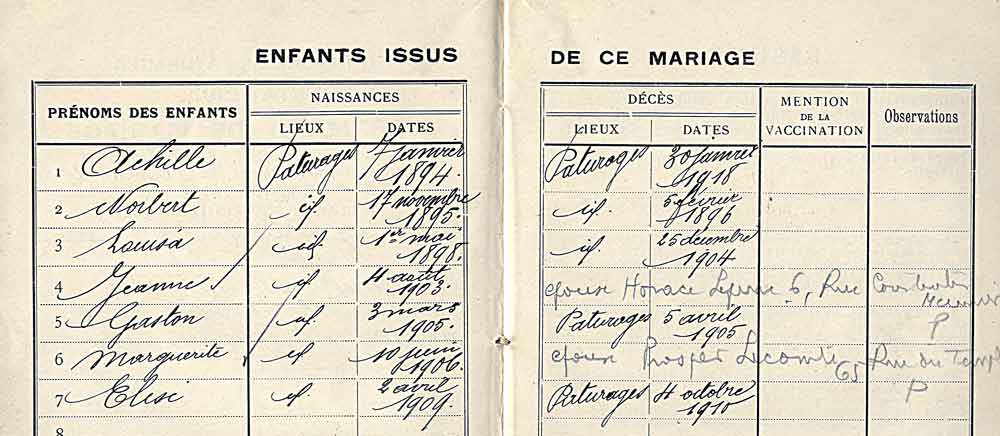 ENFANTS ISSUS DE CE MARIAGE
PRÉNOMS DES ENFANTS NAISSANCES DÉCÈS MENTION DE LA VACCINATION Observations
LIEUX DATES LIEUX DATES
1 Achille Paturages 7 Janvier 1894. Paturages 30 Janvier 1918
2 Norbert id. 17 novembre 1895. id. 5 février 1896
3 Louisa id. 1er mai 1898. id. 25 décembre 1904
4 Jeanne id 4 août 1903. épouse Horace 6, Rue
5 Gaston id. 3 mars 1905. Paturages 5 avril 1905 P
6 Marguerite id 10 juin 1906. épouse Prosper Lecomte 65 Rue du Temple P
7 Elise id. 2 avril 1909. Paturages 4 octobre 1910
8